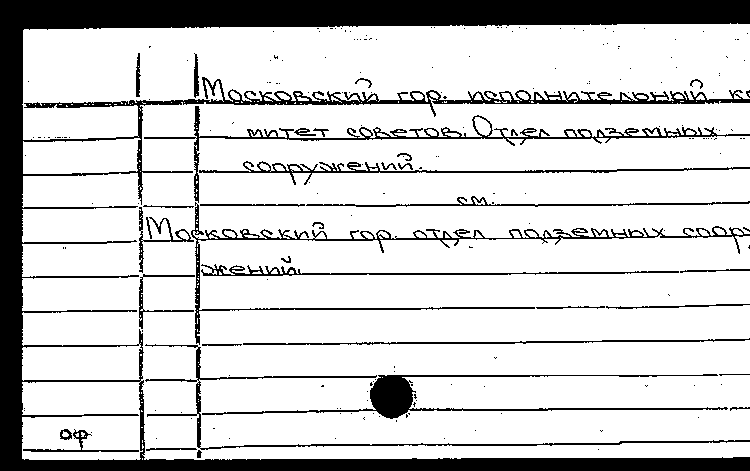 Московский гор. исполнительный ко
митет советов. Отдел подземных
сооружений.
см.
Московский гор. отдел подземных соору
жений.
оф